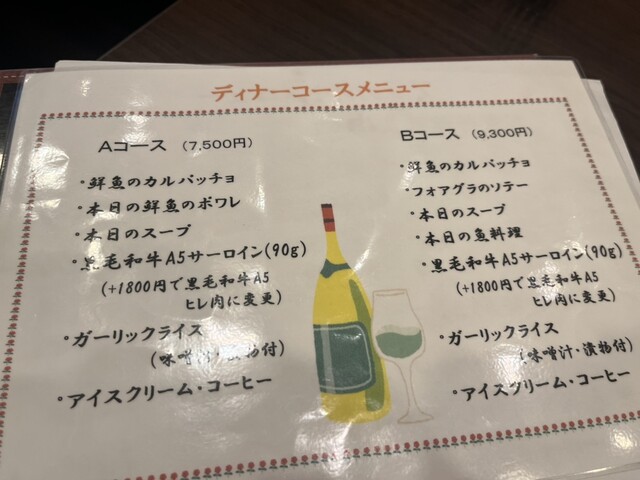 ディナーコースメニュー
Aコース (7,500円)
・鮮魚のカルパッチョ
・本日の鮮魚のポワレ
・本日のスープ
・黒毛和牛A5サーロイン(90g)
(+1800円で黒毛和牛A5
ヒレ肉に変更)
・ガーリックライス
(味噌汁・漬物付)
・アイスクリーム・コーヒー
Bコース (9,300円)
・鮮魚のカルパッチョ
・フォアグラのソテー
・本日のスープ
・本日の魚料理
・黒毛和牛A5サーロイン(90g)
(+1800円で黒毛和牛A5
ヒレ肉に変更)
・ガーリックライス
(味噌汁・漬物付)
・アイスクリーム・コーヒー